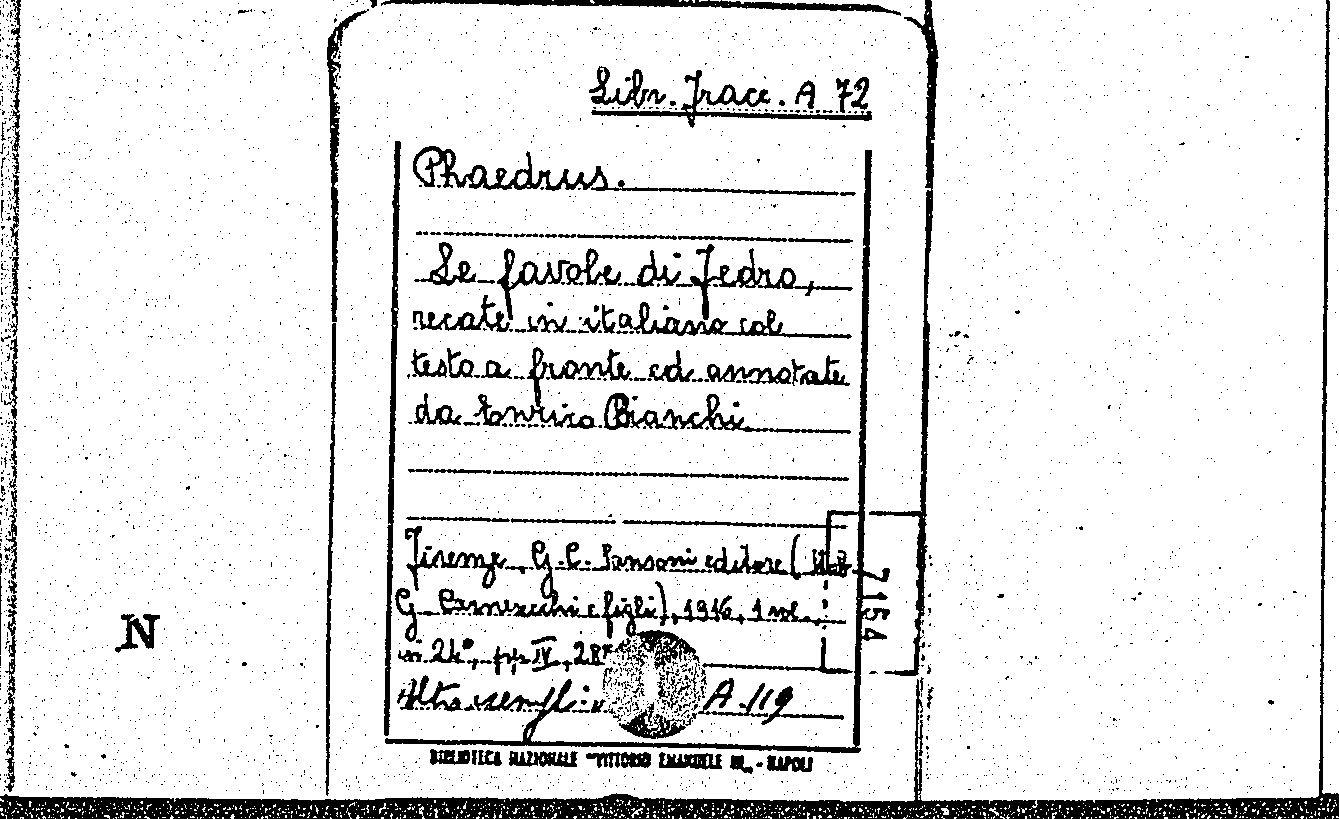 Libr. Tracc. A 72
Phaedrus.
Le favole di Fedro,
recate in italiano col
testo a fronte ed annotate
da Enrico Bianchi.
Firenze, G. C. Sansoni editore (
G. Carnesecchi e figli), 1916, 1 vol.,
in 24°, pp. IV, 28
Altro esempl. A 119
7154
N
BIBLIOTECA NAZIONALE "VITTORIO EMANUELE III„ - NAPOLI